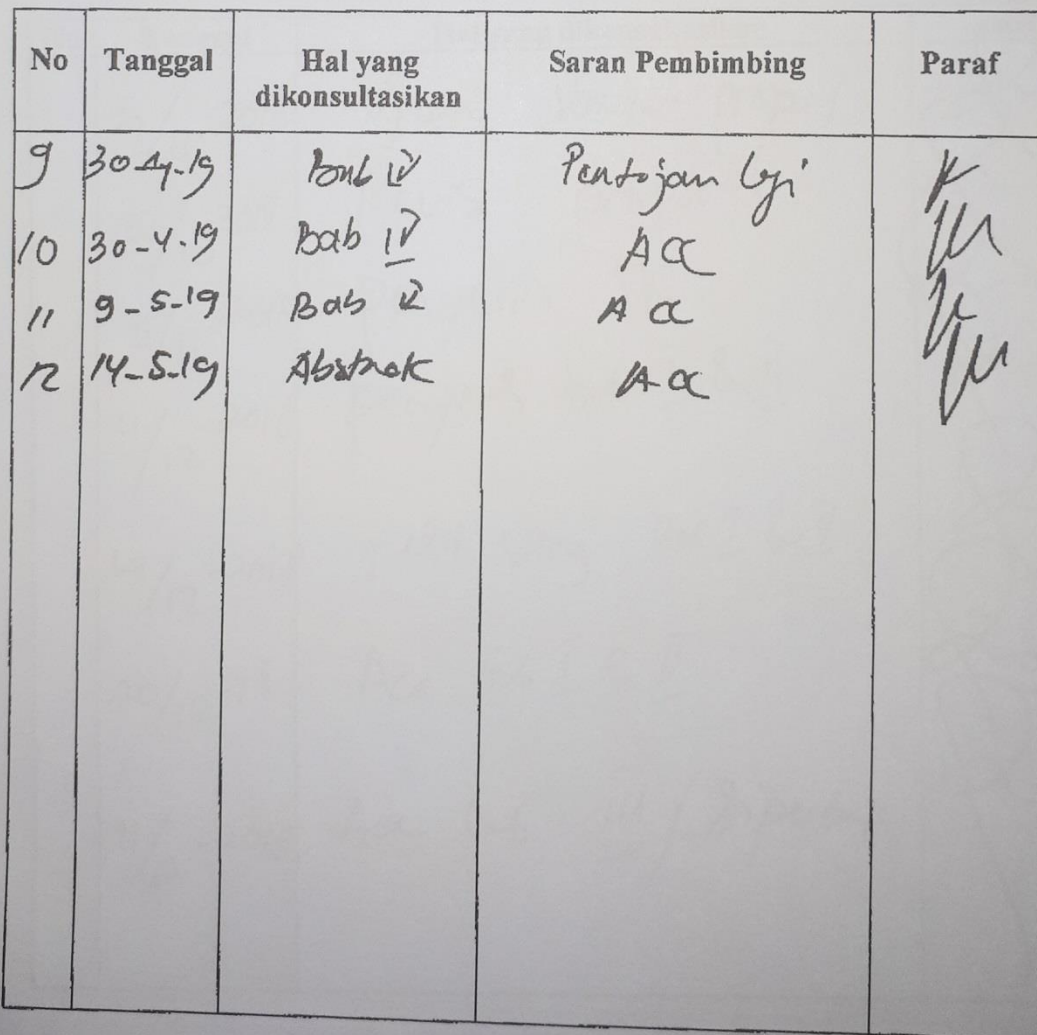 No Tanggal Hal yang dikonsultasikan Saran Pembimbing Paraf
9 30-4-19 Bab IV
10 30-4-19 Bab IV ACC
11 9-5-19 Bab V ACC
12 14-5-19 Abstrak ACC